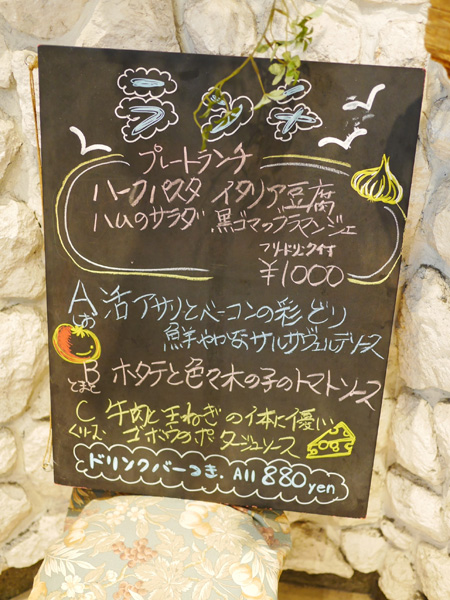 ランチ
プレートランチ
ハーフパスタ イタリア豆腐
ハムのサラダ 黒ゴマのブラマンジェ
フリードリンク付
¥1000
A 活アサリとベーコンの彩どり
しお 鮮やかなサルサヴェルデソース
B ホタテと色々木の子のトマトソース
とまと
C 牛肉と玉ねぎの体に優しい
くりーむ ゴボウのポタージュソース
ドリンクバーつき. All 880yen